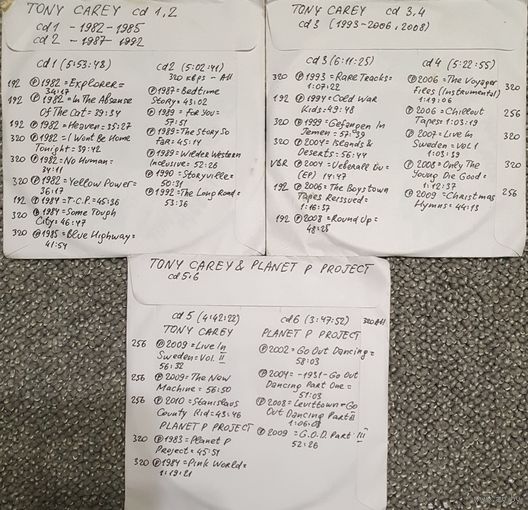 TONY CAREY cd 1,2
cd1 - 1982-1985
cd2 - 1987-1992
cd1 (5:53:48)
192 Ⓟ 1982=Explorer=
34:17
192 Ⓟ 1982=In The Absanse
Of The Cat=39:34
192 Ⓟ 1982=Heaven=35:27
320 Ⓟ 1982=I Wont Be Home
Tonight=39:42
320 Ⓟ 1982=No Human=
34:11
320 Ⓟ 1982=Yellow Power=
36:17
192 Ⓟ 1984=T.C.P=45:36
320 Ⓟ 1984=Some Tough
City=46:47
320 Ⓟ 1985=Blue Highway=
41:54
cd2 (5:02:41)
320 kBps - All
Ⓟ 1987=Bedtime
Story=43:02
Ⓟ 1989=For You=
57:51
Ⓟ 1989=The Story So
Far=45:14
Ⓟ 1989=Wilder Western
Inclusive=52:26
Ⓟ 1990=Storyville=
50:31
Ⓟ 1992=The Long Road=
53:36
TONY CAREY cd 3,4
cd3 (1993-2006, 2008)
cd3 (6:11:25)
320 Ⓟ 1993=Rare Tracks=
1:07:22
192 Ⓟ 1994=Cold War
Kids=49:48
320 Ⓟ 1999=Gefangen In
Jemen=57:39
320 Ⓟ 2004=Islands &
Deserts=56:44
VBR Ⓟ 2004=Ueberall Eu=
(EP) 14:47
192 Ⓟ 2006=The Boystown
Tapes Reissued=
1:16:37
192 Ⓟ 2008=Round Up=
48:28
cd4 (5:22:55)
320 Ⓟ 2006=The Voyager
Files (Instrumental)
1:19:06
256 Ⓟ 2006=Chillout
Tapes=1:03:19
320 Ⓟ 2007=Live In
Sweden=Vol 1
1:03:39
320 Ⓟ 2008=Only The
Young Die Good=
1:12:37
256 Ⓟ 2009=Christmas
Hymns=44:13
TONY CAREY & PLANET P PROJECT
cd 5,6
cd5 (4:42:22)
TONY CAREY
256 Ⓟ 2009=Live In
Sweden=Vol. II
56:32
256 Ⓟ 2009=The New
Machine=56:50
256 Ⓟ 2010=Stanislaus
County Kid=43:46
PLANET P PROJECT
320 Ⓟ 1983=Planet P
Project=45:51
320 Ⓟ 1984=Pink World=
1:19:21
cd6 (3:47:52) 320 All
PLANET P PROJECT
Ⓟ 2002=Go Out Dancing=
58:03
Ⓟ 2004=-1931-Go Out
Dancing Part One=
51:03
Ⓟ 2008=Levittown=Go
Out Dancing Part II
1:06:08
Ⓟ 2009=G.O.D. Part III
52:26